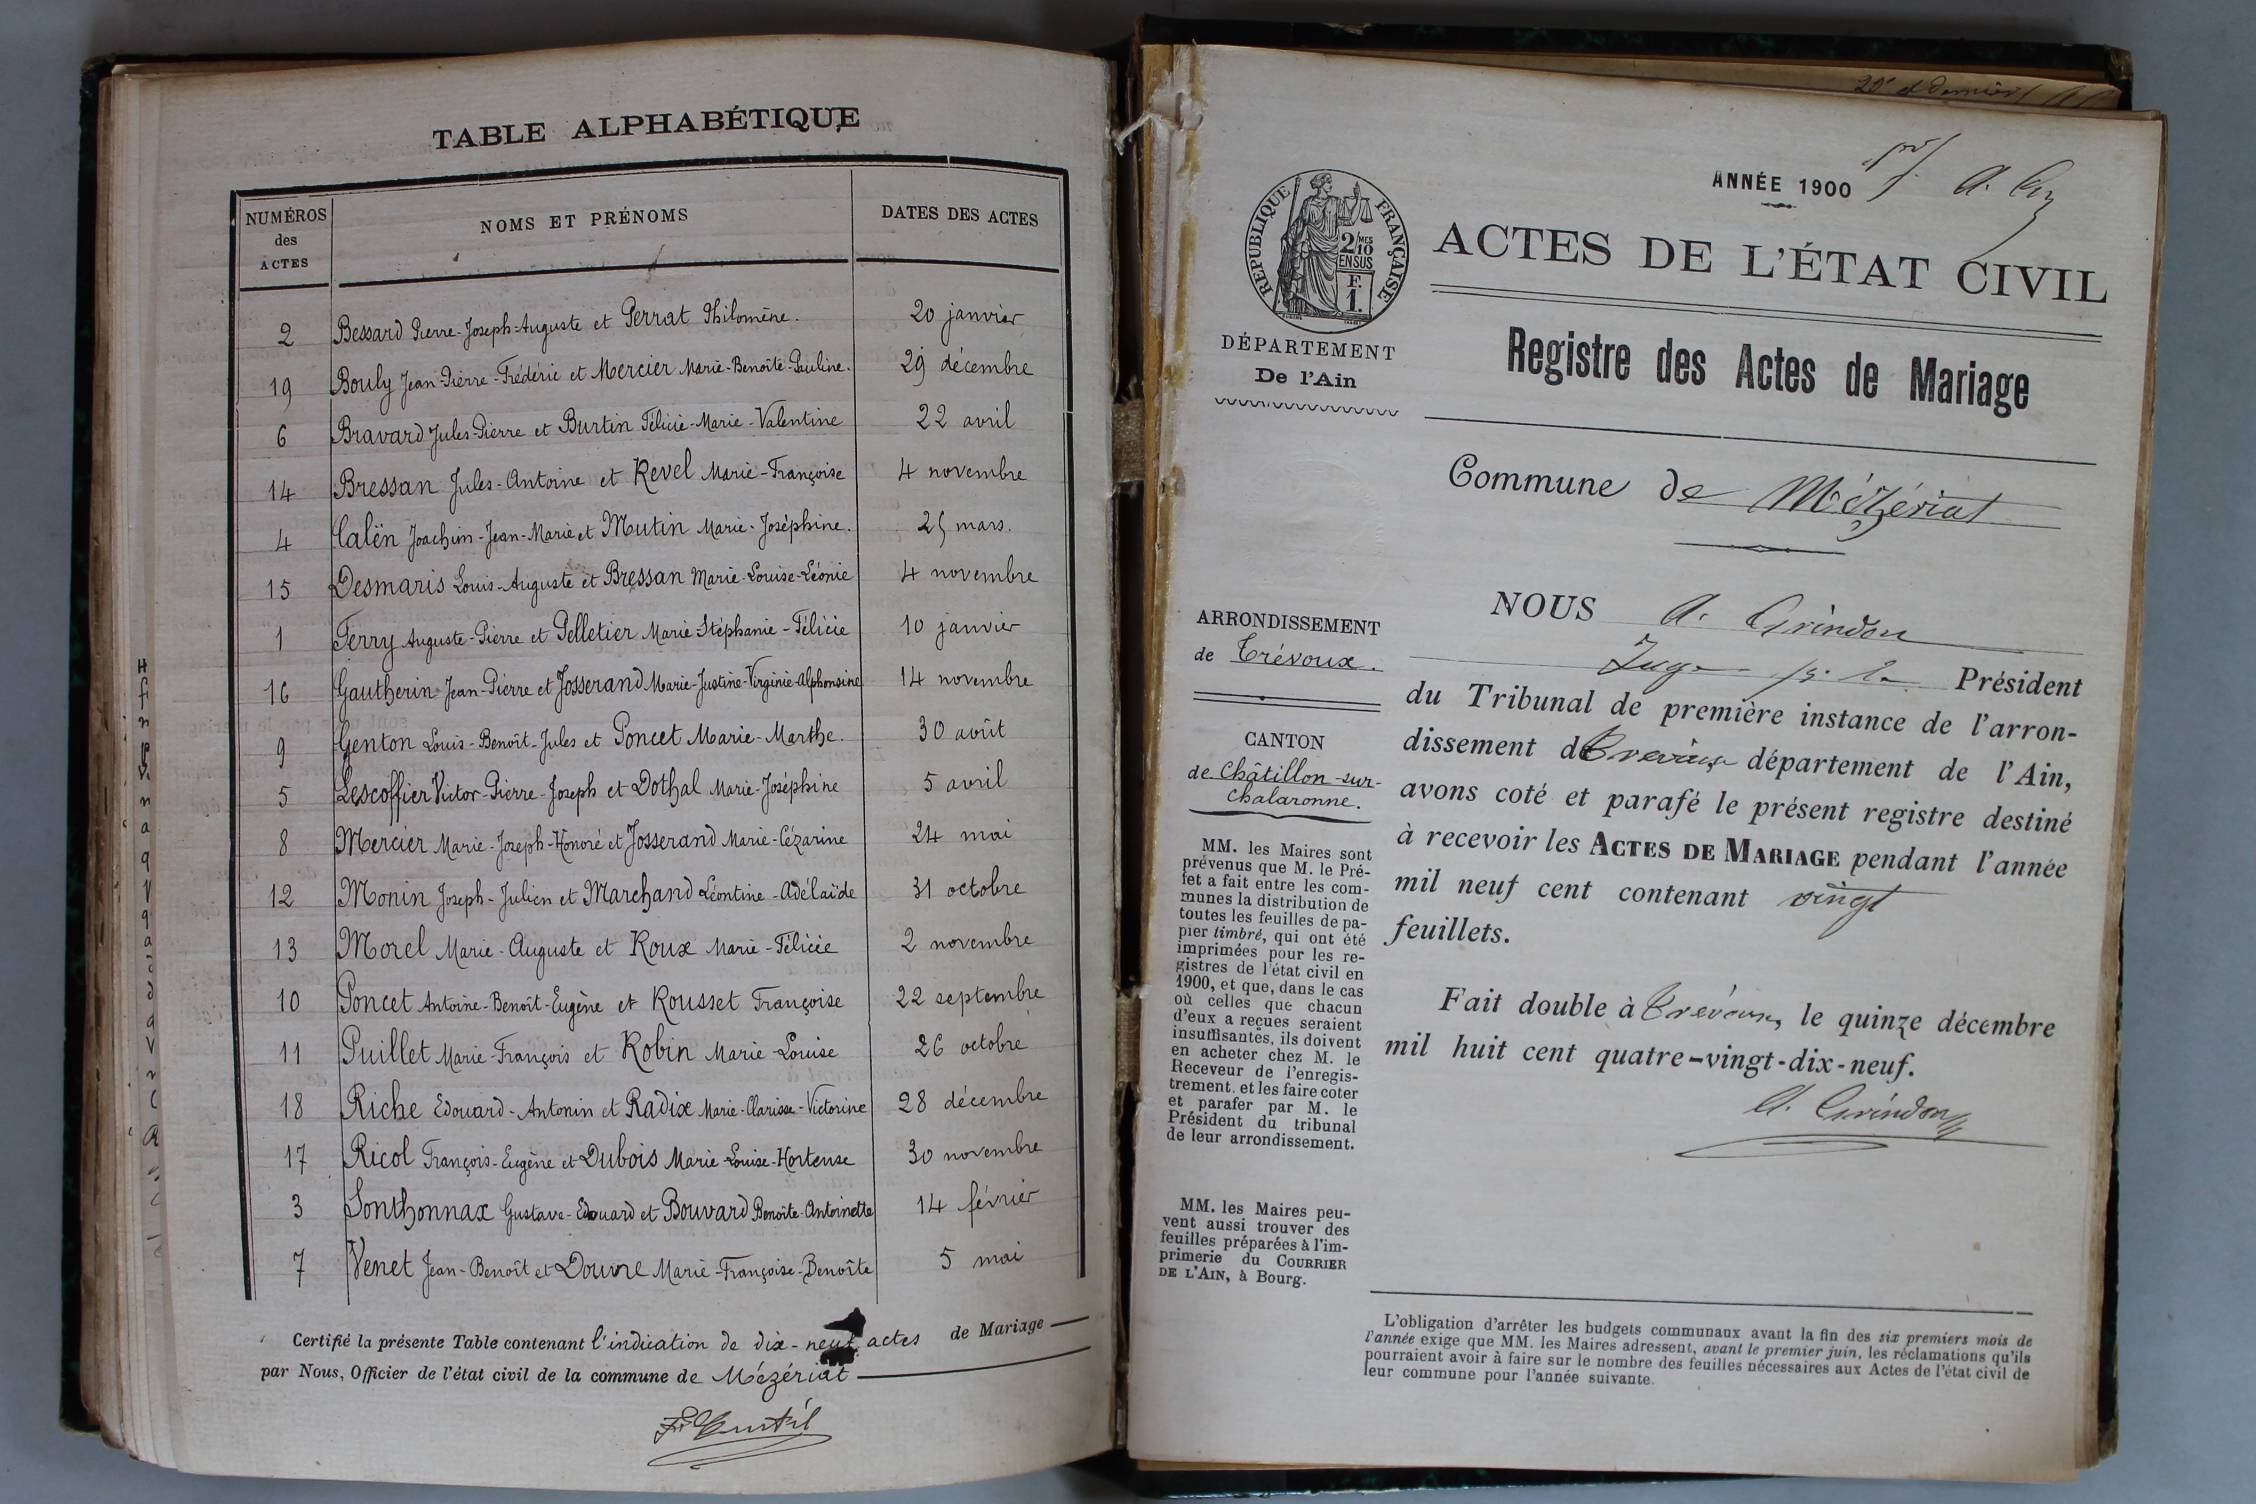 TABLE ALPHABÉTIQUE
NUMÉROS des ACTES
NOMS ET PRÉNOMS
DATES DES ACTES
2 Bessard Pierre-Joseph-Auguste et Perrat Philomène. 20 janvier
19 Bouly Jean-Pierre-Frédéric et Mercier Marie-Benoîte-Pauline. 29 décembre
6 Bravard Jules-Pierre et Burtin Félicie-Marie-Valentine 22 avril
14 Bressan Jules-Antoine et Revel Marie-Françoise 4 novembre
4 Calën Joachim-Jean-Marie et Mutin Marie-Joséphine. 25 mars.
15 Desmaris Louis-Auguste et Bressan Marie-Louise-Léonie 4 novembre
1 Ferry Auguste-Pierre et Pelletier Marie-Stéphanie-Félicie 10 janvier
16 Gautherin Jean-Pierre et Josserand Marie-Justine-Virginie-Alphonsine 14 novembre
9 Genton Louis-Benoît-Jules et Poncet Marie-Marthe. 30 août
5 Lescoffier Victor-Pierre-Joseph et Dothal Marie-Joséphine 5 avril
8 Mercier Marie-Joseph-Honoré et Josserand Marie-Cézarine 24 mai
12 Monin Joseph-Julien et Marchand Léontine-Adélaïde 31 octobre
13 Morel Marie-Auguste et Roux Marie-Félicie 2 novembre
10 Poncet Antoine-Benoît-Eugène et Rousset Françoise 22 septembre
11 Puillet Marie-François et Robin Marie-Louise 26 octobre
18 Riche Edouard-Antonin et Radix Marie-Clarisse-Victorine 28 décembre
17 Ricol François-Eugène et Dubois Marie-Louise-Hortense 30 novembre
3 Sonthonnax Gustave-Edouard et Bouvard Benoîte-Antoinette 14 février
7 Venet Jean-Benoît et Douvre Marie-Françoise-Benoîte 5 mai
Certifié la présente Table contenant l'indication de dix-neuf actes de Mariage
par Nous, Officier de l'état civil de la commune de Mézériat
20e et dernier
ANNÉE 1900
RÉPUBLIQUE FRANÇAISE
2/10MES EN SUS
F. 1.
ACTES DE L'ÉTAT CIVIL
DÉPARTEMENT
De l'Ain
Registre des Actes de Mariage
Commune de Mézériat
ARRONDISSEMENT
de Trévoux.
CANTON
de Châtillon-sur-
Chalaronne.
MM. les Maires sont
prévenus que M. le Pré-
fet a fait entre les com-
munes la distribution de
toutes les feuilles de pa-
pier timbré, qui ont été
imprimées pour les re-
gistres de l'état civil en
1900, et que, dans le cas
où celles que chacun
d'eux a reçues seraient
insuffisantes, ils doivent
en acheter chez M. le
Receveur de l'enregis-
trement, et les faire coter
et parafer par M. le
Président du tribunal
de leur arrondissement.
MM. les Maires peu-
vent aussi trouver des
feuilles préparées à l'im-
primerie du COURRIER
DE L'AIN, à Bourg.
NOUS A. Grindon
Juge p. le Président
du Tribunal de première instance de l'arron-
dissement de Trévoux département de l'Ain,
avons coté et parafé le présent registre destiné
à recevoir les ACTES DE MARIAGE pendant l'année
mil neuf cent contenant vingt
feuillets.
Fait double à Trévoux, le quinze décembre
mil huit cent quatre-vingt-dix-neuf.
A. Grindon
L'obligation d'arrêter les budgets communaux avant la fin des six premiers mois de
l'année exige que MM. les Maires adressent, avant le premier juin, les réclamations qu'ils
pourraient avoir à faire sur le nombre des feuilles nécessaires aux Actes de l'état civil de
leur commune pour l'année suivante.